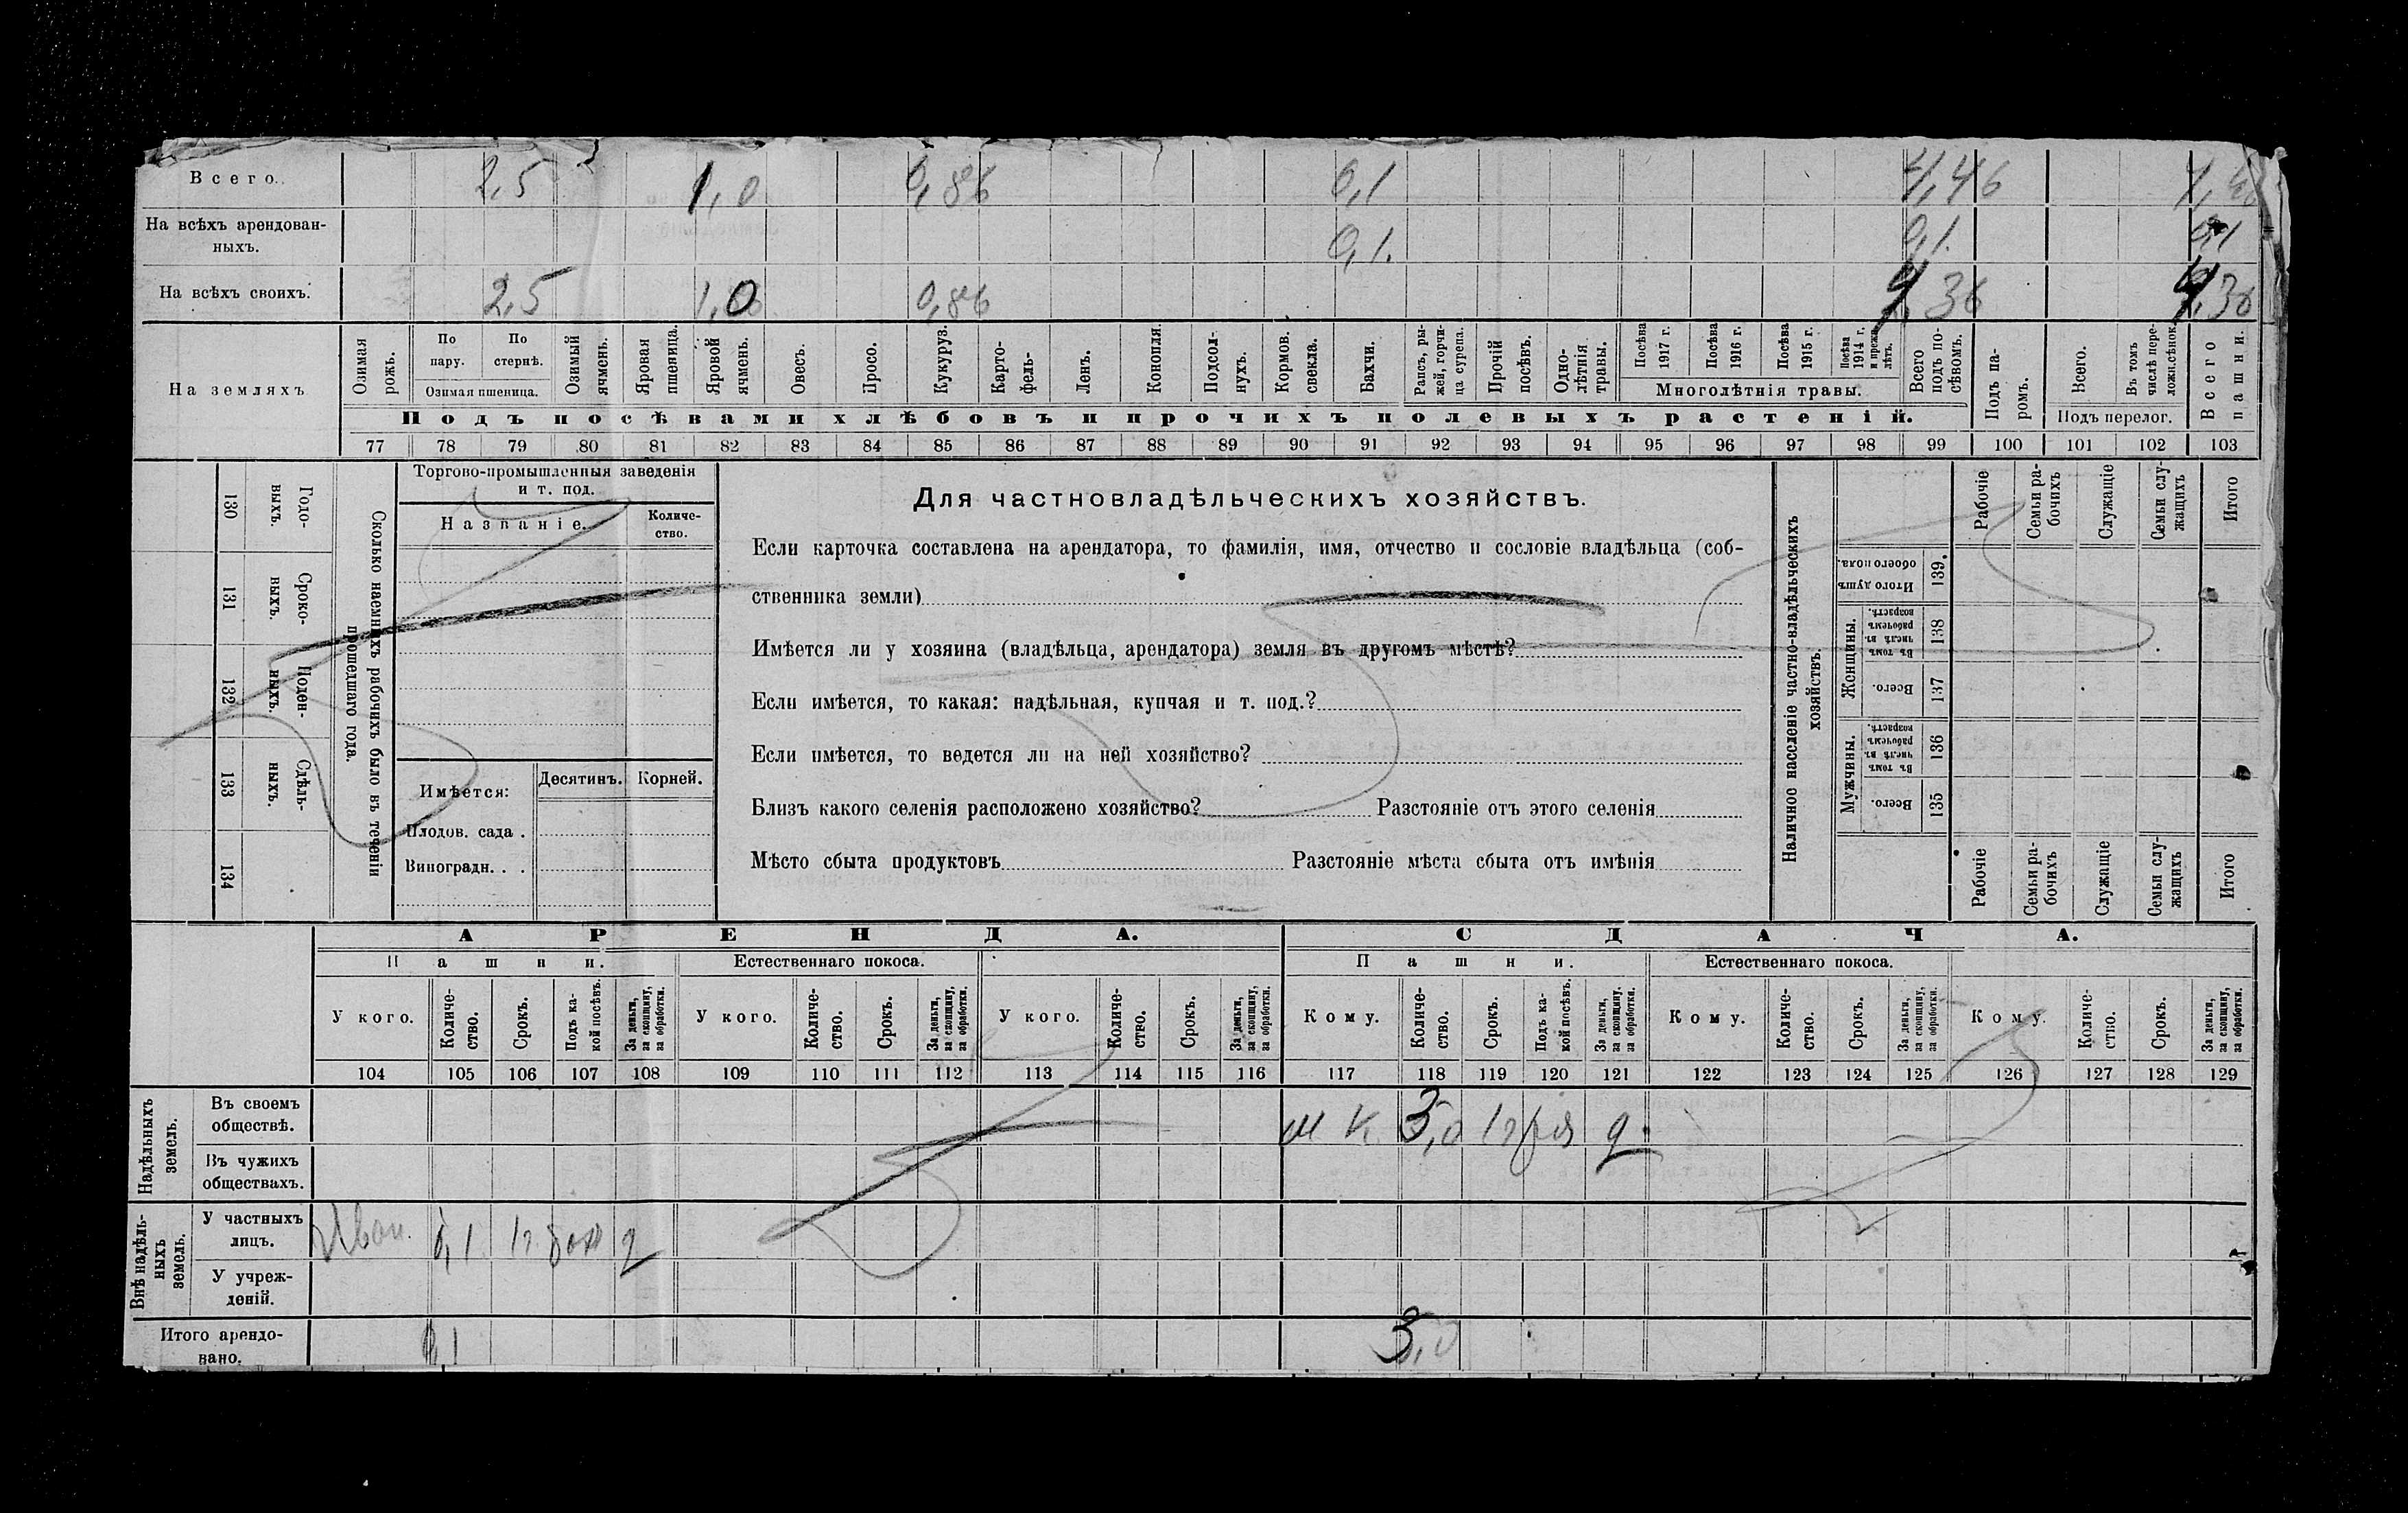 Всего. 2,5 1,0 0,86 0,1 4,46
На всѣхъ арендован-
ныхъ. 0,1. 0,1. 0,1
На всѣхъ своихъ. 2,5 1,0 0,86 4,36 4,36
На земляхъ
Озимая рожь.
По пару.
По стернѣ.
Озимая пшеница.
Озимый ячмень.
Яровая пшеница.
Яровой ячмень.
Овесъ.
Просо.
Кукуруз.
Карто-
фель-
Ленъ.
Конопля.
Подсол-
нухъ.
Кормов. свекла.
Бахчи.
Рапсъ, ры-
жей, горчи-
ца сурепа.
Прочій посѣвъ.
Одно-
лѣтнія травы.
Посѣва 1917 г.
Посѣва 1916 г.
Посѣва 1915 г.
Посѣва 1914 г. и прежн. лѣтъ.
Многолѣтнія травы.
Всего подъ по-
сѣвомъ.
Подъ посѣвами хлѣбовъ и прочихъ полевыхъ растеній.
Подъ па-
ромъ.
Всего.
Въ томъ числѣ пере-
ложн.сѣнок.
Подъ перелог.
Всего пашни.
77 78 79 80 81 82 83 84 85 86 87 88 89 90 91 92 93 94 95 96 97 98 99 100 101 102 103
130 131 132 133 134
Годо-
выхъ.
Сроко-
выхъ.
Поден-
ныхъ.
Сдѣль-
ныхъ.
Сколько наемныхъ рабочихъ было въ теченіи
прошедшаго года.
Торгово-промышленныя заведенія
и т. под.
Названіе.
Количе-
ство.
Имѣется:
Десятинъ. Корней.
Плодов. сада .
Виноградн. . .
Для частновладѣльческихъ хозяйствъ.
Если карточка составлена на арендатора, то фамилія, имя, отчество и сословіе владѣльца (соб-
ственника земли)
Имѣется ли у хозяина (владѣльца, арендатора) земля въ другомъ мѣстѣ?
Если имѣется, то какая: надѣльная, купчая и т. под.?
Если имѣется, то ведется ли на ней хозяйство?
Близъ какого селенія расположено хозяйство? Разстояніе отъ этого селенія
Мѣсто сбыта продуктовъ Разстояніе мѣста сбыта отъ имѣнія
Наличное населеніе частно-владѣльческихъ
хозяйствъ.
Итого душъ обоего пола. 139.
Женщины.
Въ томъ числѣ въ рабочемъ возрастѣ. 138
Всего. 137
Мужчины.
Въ томъ числѣ въ рабочемъ возрастѣ. 136
Всего. 135
Рабочіе
Семьи ра-
бочихъ
Служащіе
Семьи слу-
жащихъ
Итого
Рабочіе
Семьи ра-
бочихъ
Служащіе
Семьи слу-
жащихъ
Итого
АРЕНДА. СДАЧА.
Пашни. Естественнаго покоса. Пашни. Естественнаго покоса.
У кого.
Количе-
ство.
Срокъ.
Подъ ка-
кой посѣвъ.
За деньги, за скопщину, за обработки.
У кого.
Количе-
ство.
Срокъ.
За деньги, за скопщину, за обработки.
У кого.
Количе-
ство.
Срокъ.
За деньги, за скопщину, за обработки.
Кому.
Количе-
ство.
Срокъ.
Подъ ка-
кой посѣвъ.
За деньги, за скопщину, за обработки.
Кому.
Количе-
ство.
Срокъ.
За деньги, за скопщину, за обработки.
Кому.
Количе-
ство.
Срокъ.
За деньги, за скопщину, за обработки.
104 105 106 107 108 109 110 111 112 113 114 115 116 117 118 119 120 121 122 123 124 125 126 127 128 129
Надѣльныхъ
земель.
Въ своемъ
обществѣ. 3,0
Въ чужихъ
обществахъ.
Внѣ надѣль-
ныхъ
земель.
У частныхъ
лицъ. 0,1
У учреж-
деній.
Итого арендо-
вано. 0,1 3,0